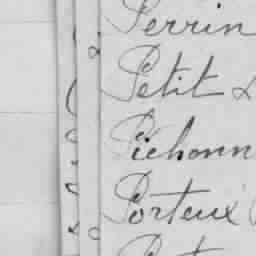 Perrin
Petit
Pichonn
Porteux